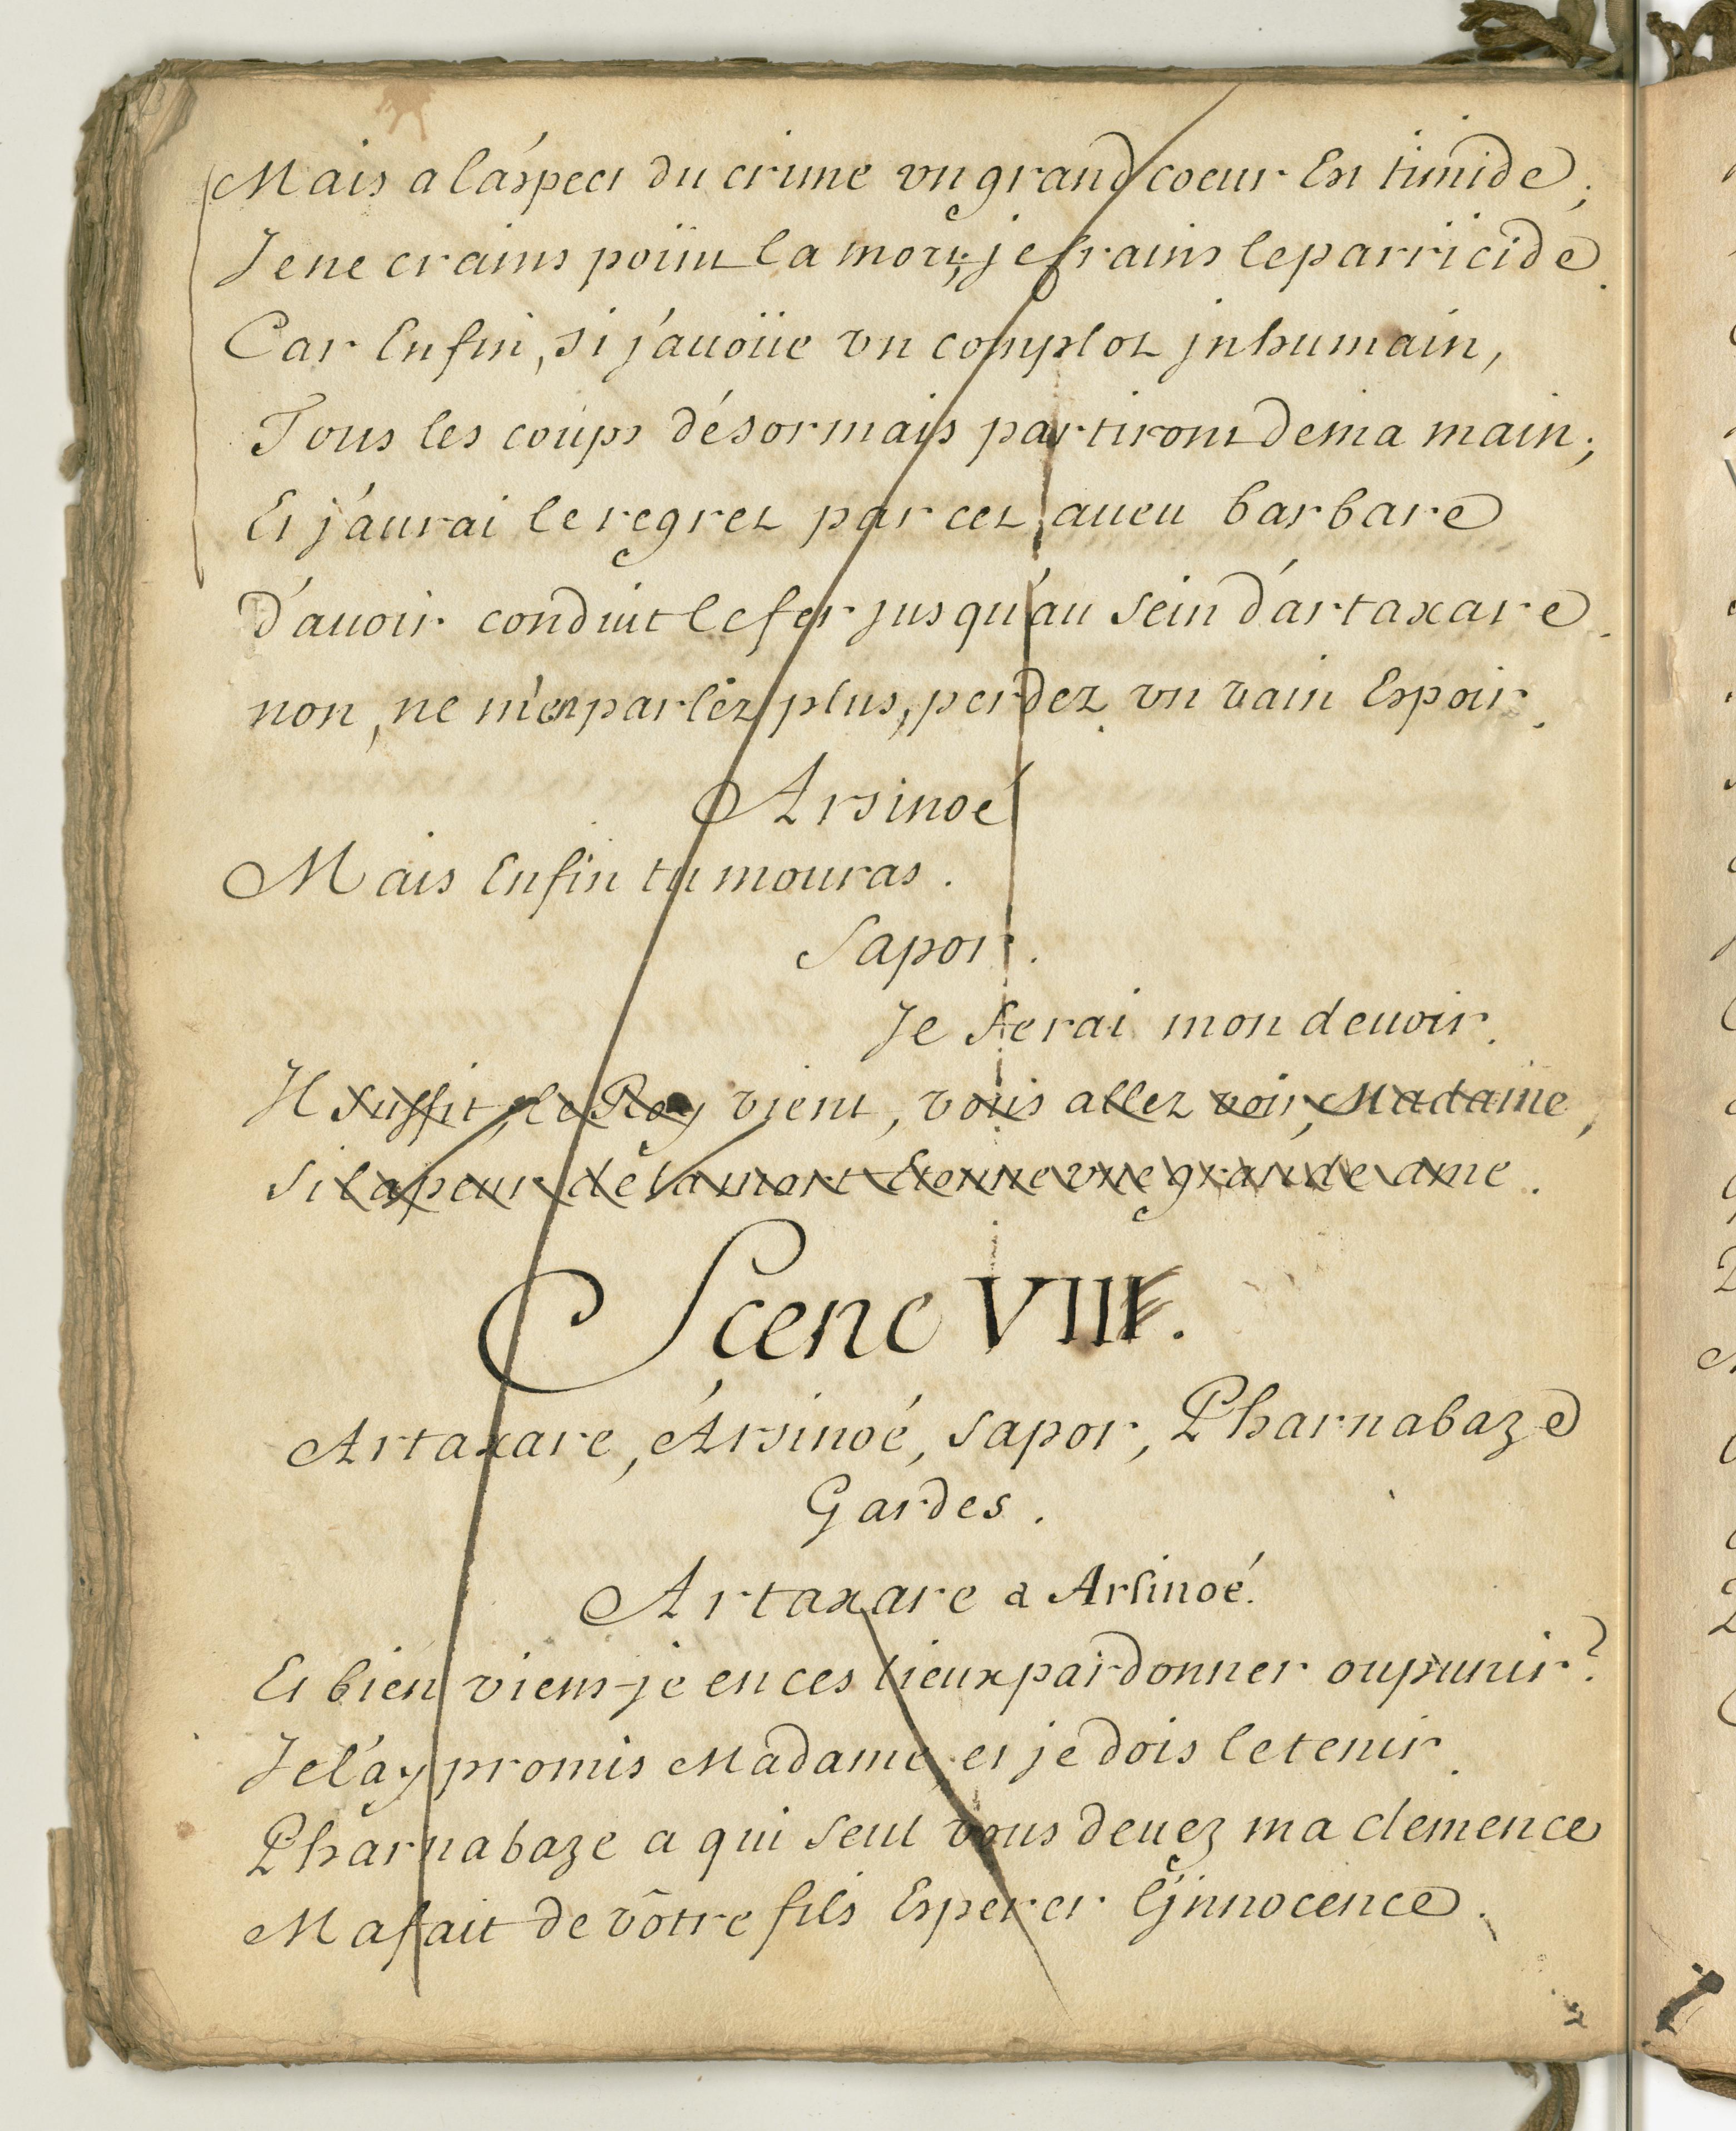 Mais a l'aspect du crime vn grand coeur Est timide;
Je ne crains point la mort, je crains le parricide.
Car Enfin, si j'auoüe vn complot jnhumain,
Tous les coups désormais partiront de ma main;
Et j'aurai le regret par cet aueu barbare
D'auoir conduit le fer jusqu'au sein d'artaxare.
non, ne m'en parléz plus, perdez vn vain Espoir.
Arsinoé
Mais Enfin tu mouras.
Sapor.
Je ferai mon deuoir.
Il suffit, le Roy vient, vous allez voir, Madame,
Si la peur de la mort Etonne vne grande ame.
Scene VIII.
Artaxare, Arsinoé, Sapor, Pharnabaze
Gardes.
Artaxare a Arsinoé.
Et bien viens-je en ces lieux pardonner ou punir?
Je l'ay promis Madame, et je dois le tenir.
Pharnabaze a qui seul vous deuez ma clemence
M'a fait de vôtre fils Esperer l'jnnocence.